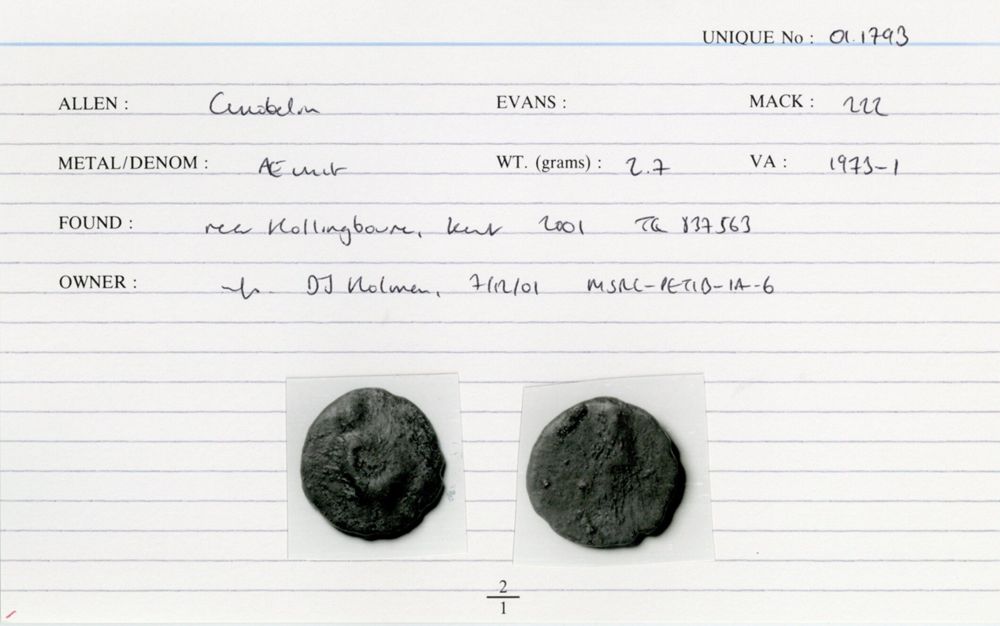 UNIQUE No : 01.1793
ALLEN : Cunobelin EVANS : MACK : 222
METAL/DENOM : AE unit WT. (grams) : 2.7 VA : 1973-1
FOUND : near Hollingbourne, Kent 2001 TQ 837563
OWNER : DJ Holman, 7/12/01
2
1